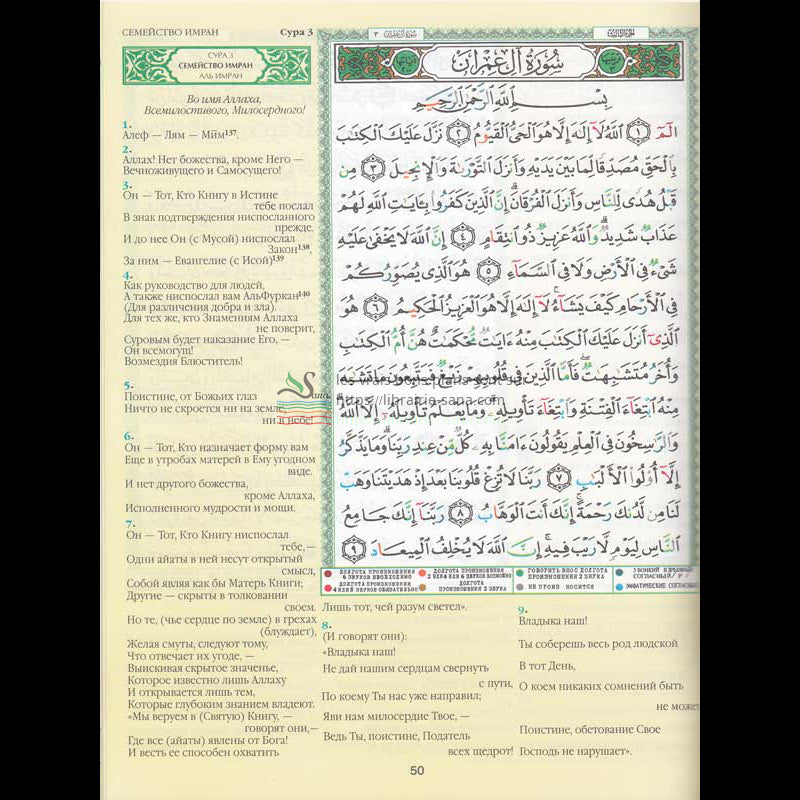 СЕМЕЙСТВО ИМРАН Сура 3
СУРА 3
СЕМЕЙСТВО ИМРАН
АЛЬ ИМРАН
Во имя Аллаха,
Всемилостивого, Милосердного!
1.
Алеф — Лям — Мим137.
2.
Аллах! Нет божества, кроме Него —
Вечноживущего и Самосущего!
3.
Он — Тот, Кто Книгу в Истине
тебе послал
В знак подтверждения ниспосланного
прежде.
И до нее Он (с Мусой) ниспослал
Закон138,
За ним — Евангелие (с Исой)139
4.
Как руководство для людей,
А также ниспослал вам АльФуркан140
(Для различения добра и зла).
Для тех же, кто Знамениям Аллаха
не поверит,
Суровым будет наказание Его, —
Он всемогущ!
Возмездия Блюститель!
5.
Поистине, от Божьих глаз
Ничто не скроется ни на земле,
ни в небе!
6.
Он — Тот, Кто назначает форму вам
Еще в утробах матерей в Ему угодном
виде.
И нет другого божества,
кроме Аллаха,
Исполненного мудрости и мощи.
7.
Он — Тот, Кто Книгу ниспослал
тебе, —
Одни айаты в ней несут открытый
смысл,
Собой являя как бы Матерь Книги;
Другие — скрыты в толковании
своем.
Но те, (чье сердце по земле) в грехах
(блуждает),
Желая смуты, следуют тому,
Что отвечает их угоде, —
Выискивая скрытое значенье,
Которое известно лишь Аллаху
И открывается лишь тем,
Которые глубоким знанием владеют.
«Мы веруем в (Святую) Книгу, —
говорят они,—
Где все (айаты) явлены от Бога!
И весть ее способен охватить
سُورَةُ آلِ عِمْرَان ٣
الجزء الثالث
سُورَةُ آلِ عِمْرَان
بِسْمِ اللَّهِ الرَّحْمَٰنِ الرَّحِيمِ
الٓمٓ ١ ٱللَّهُ لَآ إِلَٰهَ إِلَّا هُوَ ٱلْحَىُّ ٱلْقَيُّومُ ٢ نَزَّلَ عَلَيْكَ ٱلْكِتَٰبَ
بِٱلْحَقِّ مُصَدِّقًا لِّمَا بَيْنَ يَدَيْهِ وَأَنزَلَ ٱلتَّوْرَىٰةَ وَٱلْإِنجِيلَ ٣ مِن
قَبْلُ هُدًى لِّلنَّاسِ وَأَنزَلَ ٱلْفُرْقَانَ ۗ إِنَّ ٱلَّذِينَ كَفَرُوا۟ بِـَٔايَٰتِ ٱللَّهِ لَهُمْ
عَذَابٌ شَدِيدٌ ۗ وَٱللَّهُ عَزِيزٌ ذُو ٱنتِقَامٍ ٤ إِنَّ ٱللَّهَ لَا يَخْفَىٰ عَلَيْهِ
شَىْءٌ فِى ٱلْأَرْضِ وَلَا فِى ٱلسَّمَآءِ ٥ هُوَ ٱلَّذِى يُصَوِّرُكُمْ
فِى ٱلْأَرْحَامِ كَيْفَ يَشَآءُ ۚ لَآ إِلَٰهَ إِلَّا هُوَ ٱلْعَزِيزُ ٱلْحَكِيمُ ٦ هُوَ
ٱلَّذِىٓ أَنزَلَ عَلَيْكَ ٱلْكِتَٰبَ مِنْهُ ءَايَٰتٌ مُّحْكَمَٰتٌ هُنَّ أُمُّ ٱلْكِتَٰبِ
وَأُخَرُ مُتَشَٰبِهَٰتٌ ۖ فَأَمَّا ٱلَّذِينَ فِى قُلُوبِهِمْ زَيْغٌ فَيَتَّبِعُونَ مَا تَشَٰبَهَ
مِنْهُ ٱبْتِغَآءَ ٱلْفِتْنَةِ وَٱبْتِغَآءَ تَأْوِيلِهِۦ ۗ وَمَا يَعْلَمُ تَأْوِيلَهُۥٓ إِلَّا ٱللَّهُ ۗ
وَٱلرَّٰسِخُونَ فِى ٱلْعِلْمِ يَقُولُونَ ءَامَنَّا بِهِۦ كُلٌّ مِّنْ عِندِ رَبِّنَا ۗ وَمَا يَذَّكَّرُ
إِلَّآ أُو۟لُوا۟ ٱلْأَلْبَٰبِ ٧ رَبَّنَا لَا تُزِغْ قُلُوبَنَا بَعْدَ إِذْ هَدَيْتَنَا وَهَبْ
لَنَا مِن لَّدُنكَ رَحْمَةً ۚ إِنَّكَ أَنتَ ٱلْوَهَّابُ ٨ رَبَّنَآ إِنَّكَ جَامِعُ
ٱلنَّاسِ لِيَوْمٍ لَّا رَيْبَ فِيهِ ۚ إِنَّ ٱللَّهَ لَا يُخْلِفُ ٱلْمِيعَادَ ٩
Sana
les vrais bons plans sont sur
https://librairie-sana.com
ДОЛГОТА ПРОИЗНОШЕНИЯ
6 ЗВУКОВ НЕОБХОДИМО
ДОЛГОТА ПРОИЗНОШЕНИЯ
2 ИЛИ 4 ИЛИ 6 ЗВУКОВ ВОЗМОЖНО
ГОВОРИТЬ В НОС ДОЛГОТА
ПРОИЗНОШЕНИЯ 2 ЗВУКА
ДОЛГОТА ПРОИЗНОШЕНИЯ
4 ИЛИ 5 ЗВУКОВ ОБЯЗАТЕЛЬНО
ДОЛГОТА
ПРОИЗНОШЕНИЯ 2 ЗВУКА
НЕ ПРОИЗНОСИТСЯ
Лишь тот, чей разум светел».
8.
(И говорят они):
«Владыка наш!
Не дай нашим сердцам свернуть
с пути,
По коему Ты нас уже направил;
Яви нам милосердие Твое, —
Ведь Ты, поистине, Податель
всех щедрот!
9.
Владыка наш!
Ты соберешь весь род людской
В тот День,
О коем никаких сомнений быть
не может
Поистине, обетование Свое
Господь не нарушает».
50